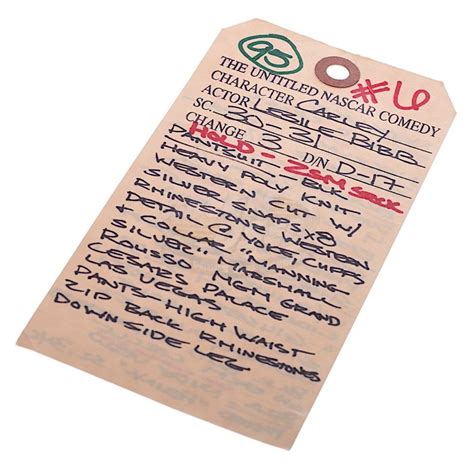 95
#6
THE UNTITLED NASCAR COMEDY
CHARACTER CARLEY
ACTOR LESLIE BIBB
SC. 30-31
CHANGE 3 D/N D-17
HOLD - ZSM SRCK
PANTSUIT - BLK
HEAVY POLY KNIT
WESTERN CUT W/
SILVER SNAPS X8
+ RHINESTONE WESTERN
DETAIL @ YOKE, CUFFS
+ COLLAR "MANNING
SILVER" MARSHALL
ROUSSO MGM GRAND
CESARS PALACE
LAS VEGAS
PANTS - HIGH WAIST
ZIP BACK RHINESTONES
DOWN SIDE LEG